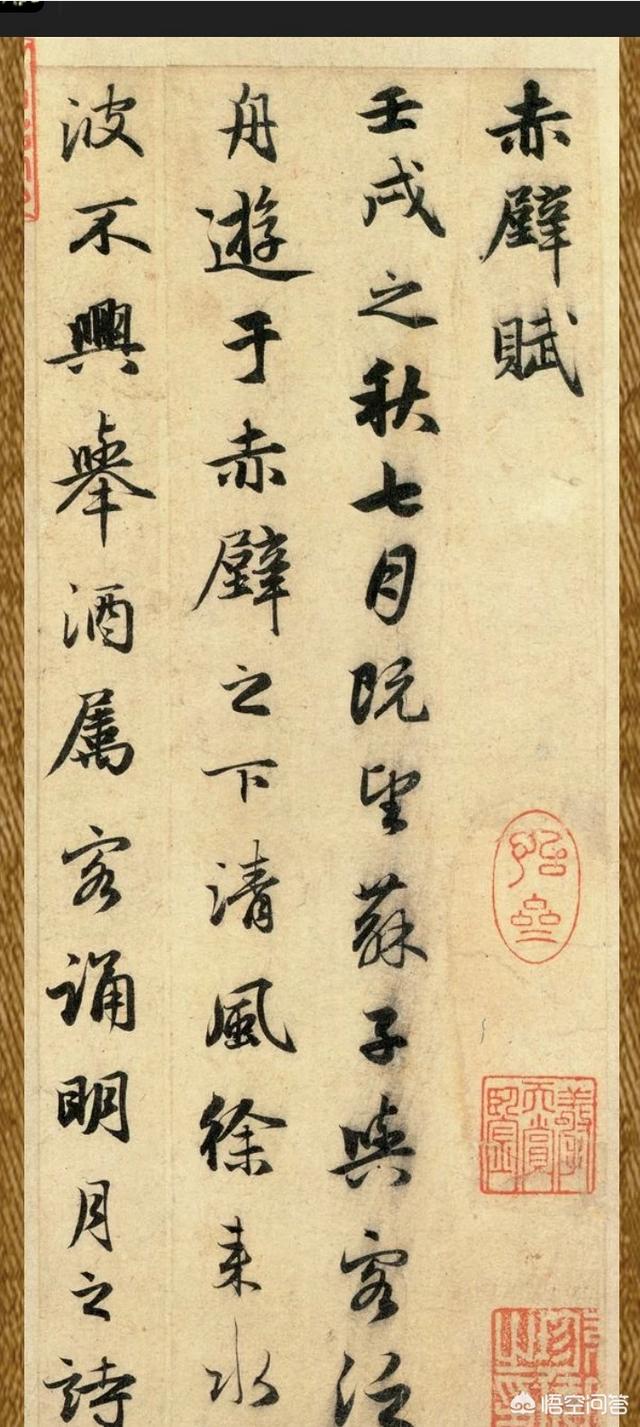 赤壁賦
壬戌之秋七月既望蘇子與客泛
舟遊于赤壁之下清風徐來水
波不興舉酒属客誦明月之詩
悟空问答